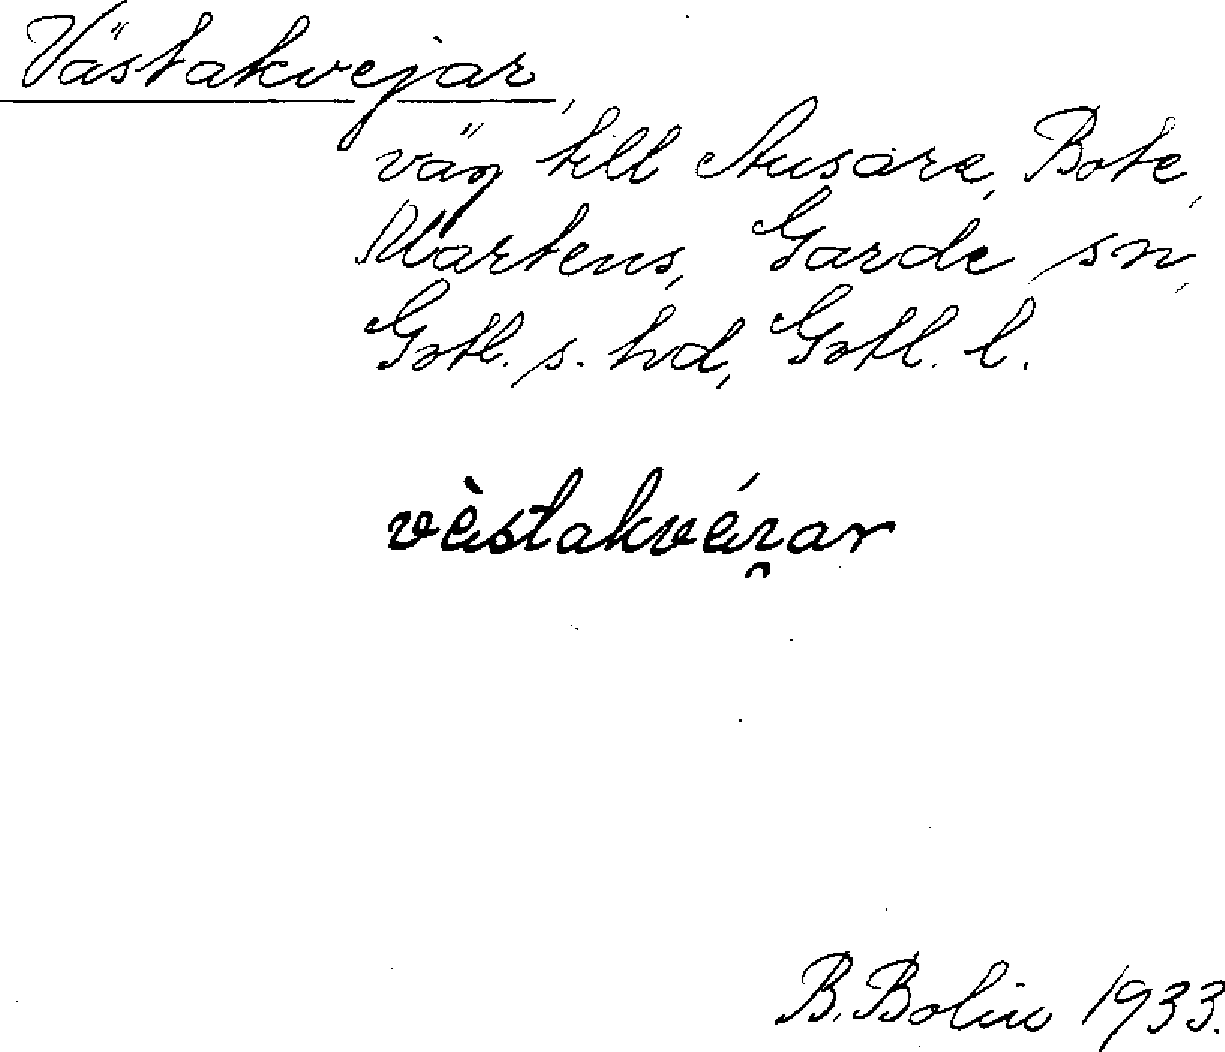 Västakvejar,
väg till Ausare, Bote,
Martens, Garde sn,
Gotl. s. hd, Gotl. l.
vèstakvéɪ̯ar
B. Bolin 1933.